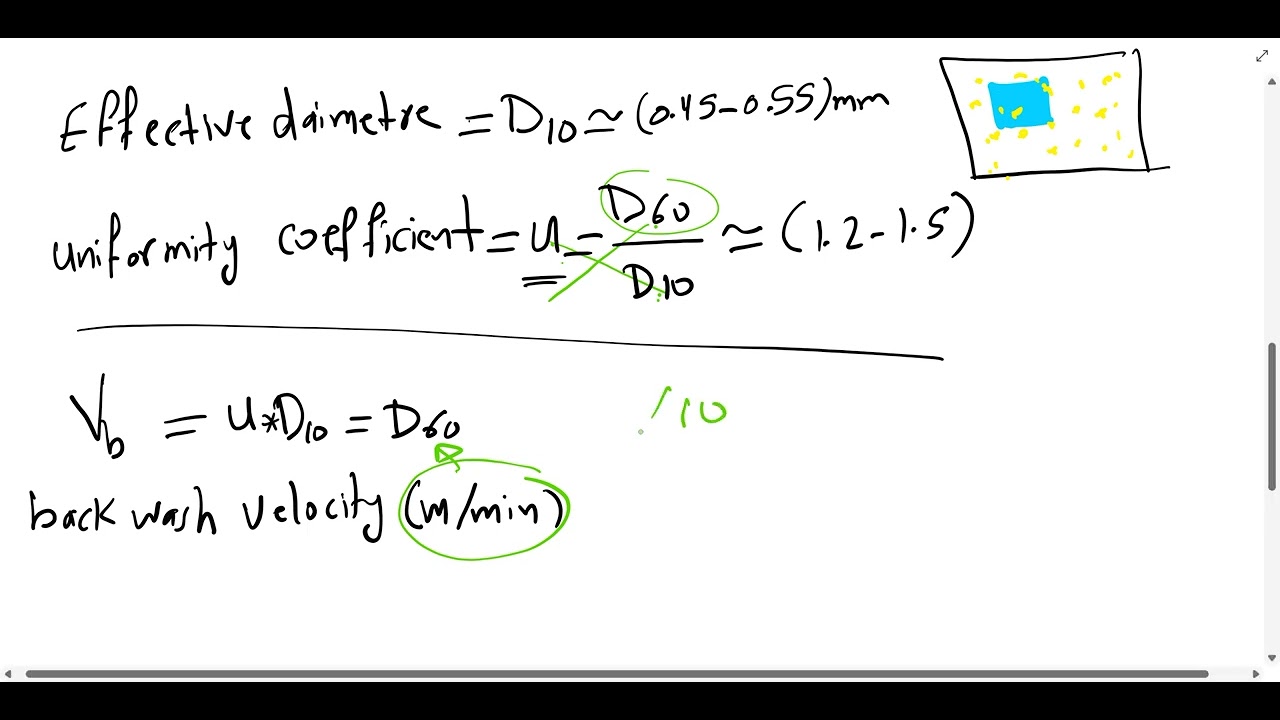 Effective daimetre = D10 ≃ (0.45-0.55)mm
uniformity coefficient = u = D60 / D10 ≃ (1.2-1.5)
Vb = u*D10 = D60
/10
back wash velocity (m/min)